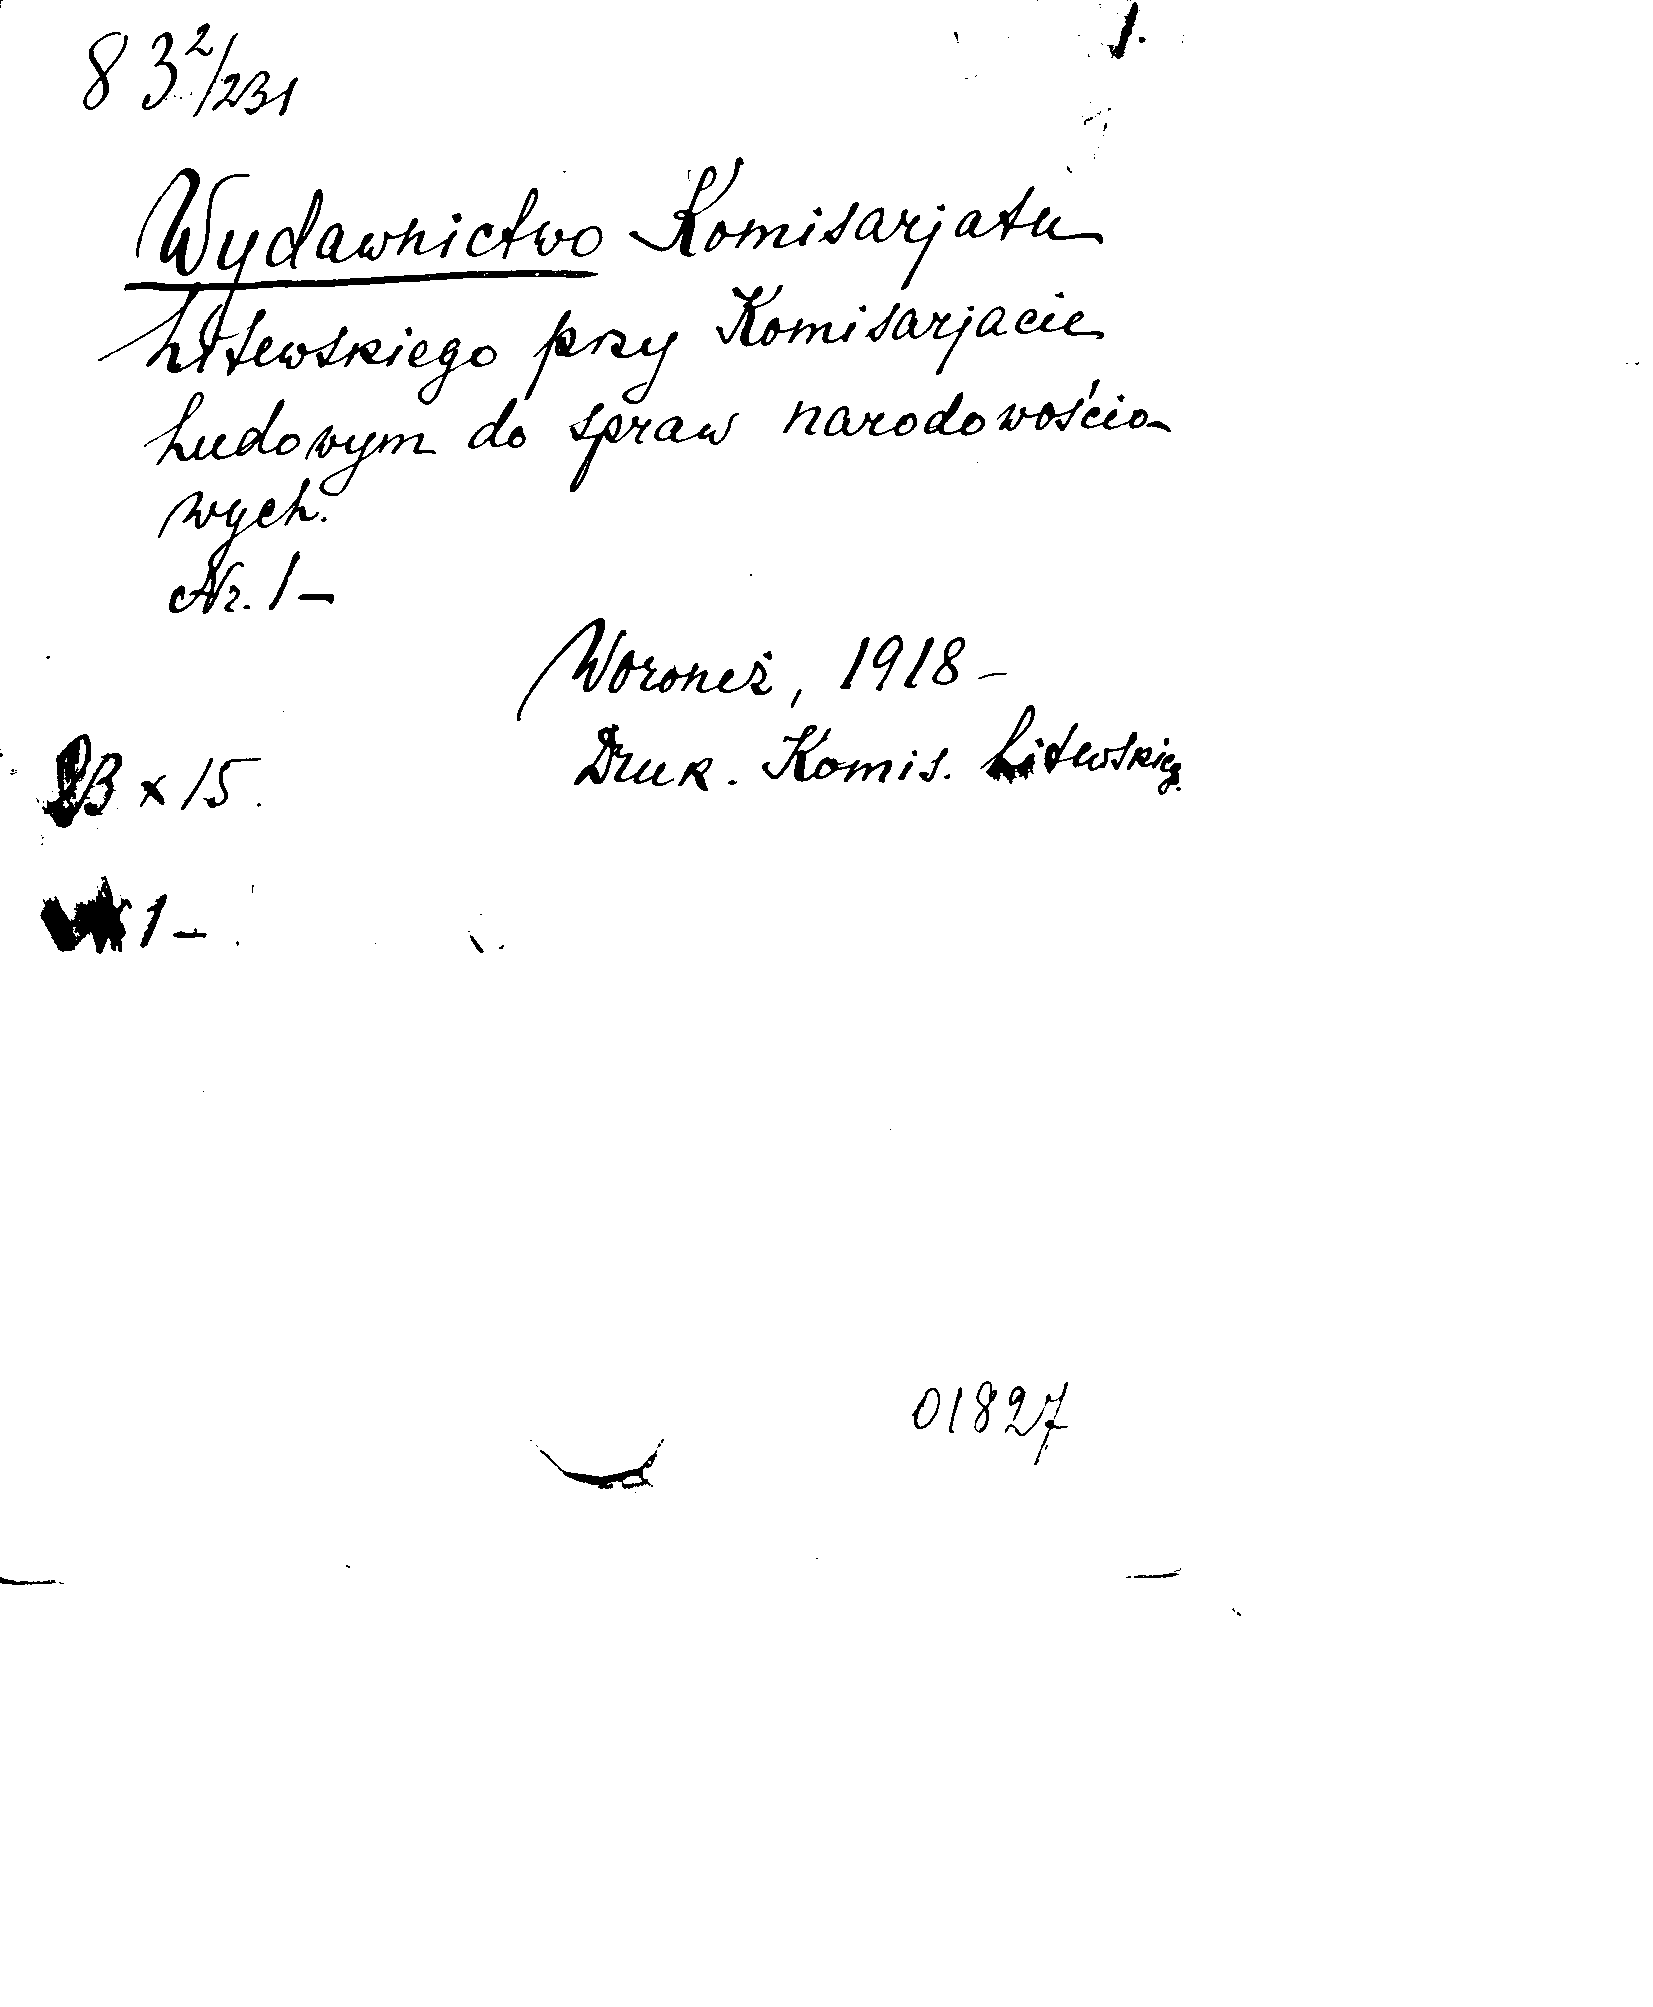 1.
83²/231
Wydawnictwo Komisarjatu
Litewskiego przy Komisarjacie
Ludowym do spraw narodowościo-
wych.
Nr. 1-
Woroneż, 1918-
Druk. Komis. Litewskieg.
23 x 15.
1-
01827